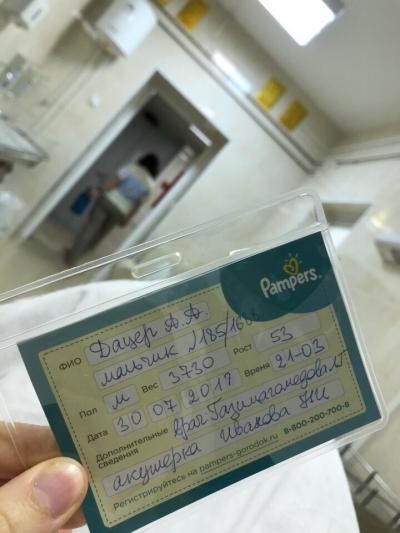 Pampers
ФИО Дауер А.А.
мальчик №185/1668
Пол м Вес 3730 Рост 53
Дата 30 07 2019 Время 21-03
Дополнительные сведения врач
акушерка Ивакова НИ
Регистрируйтесь на pampers-gorodok.ru 8-800-200-700-8